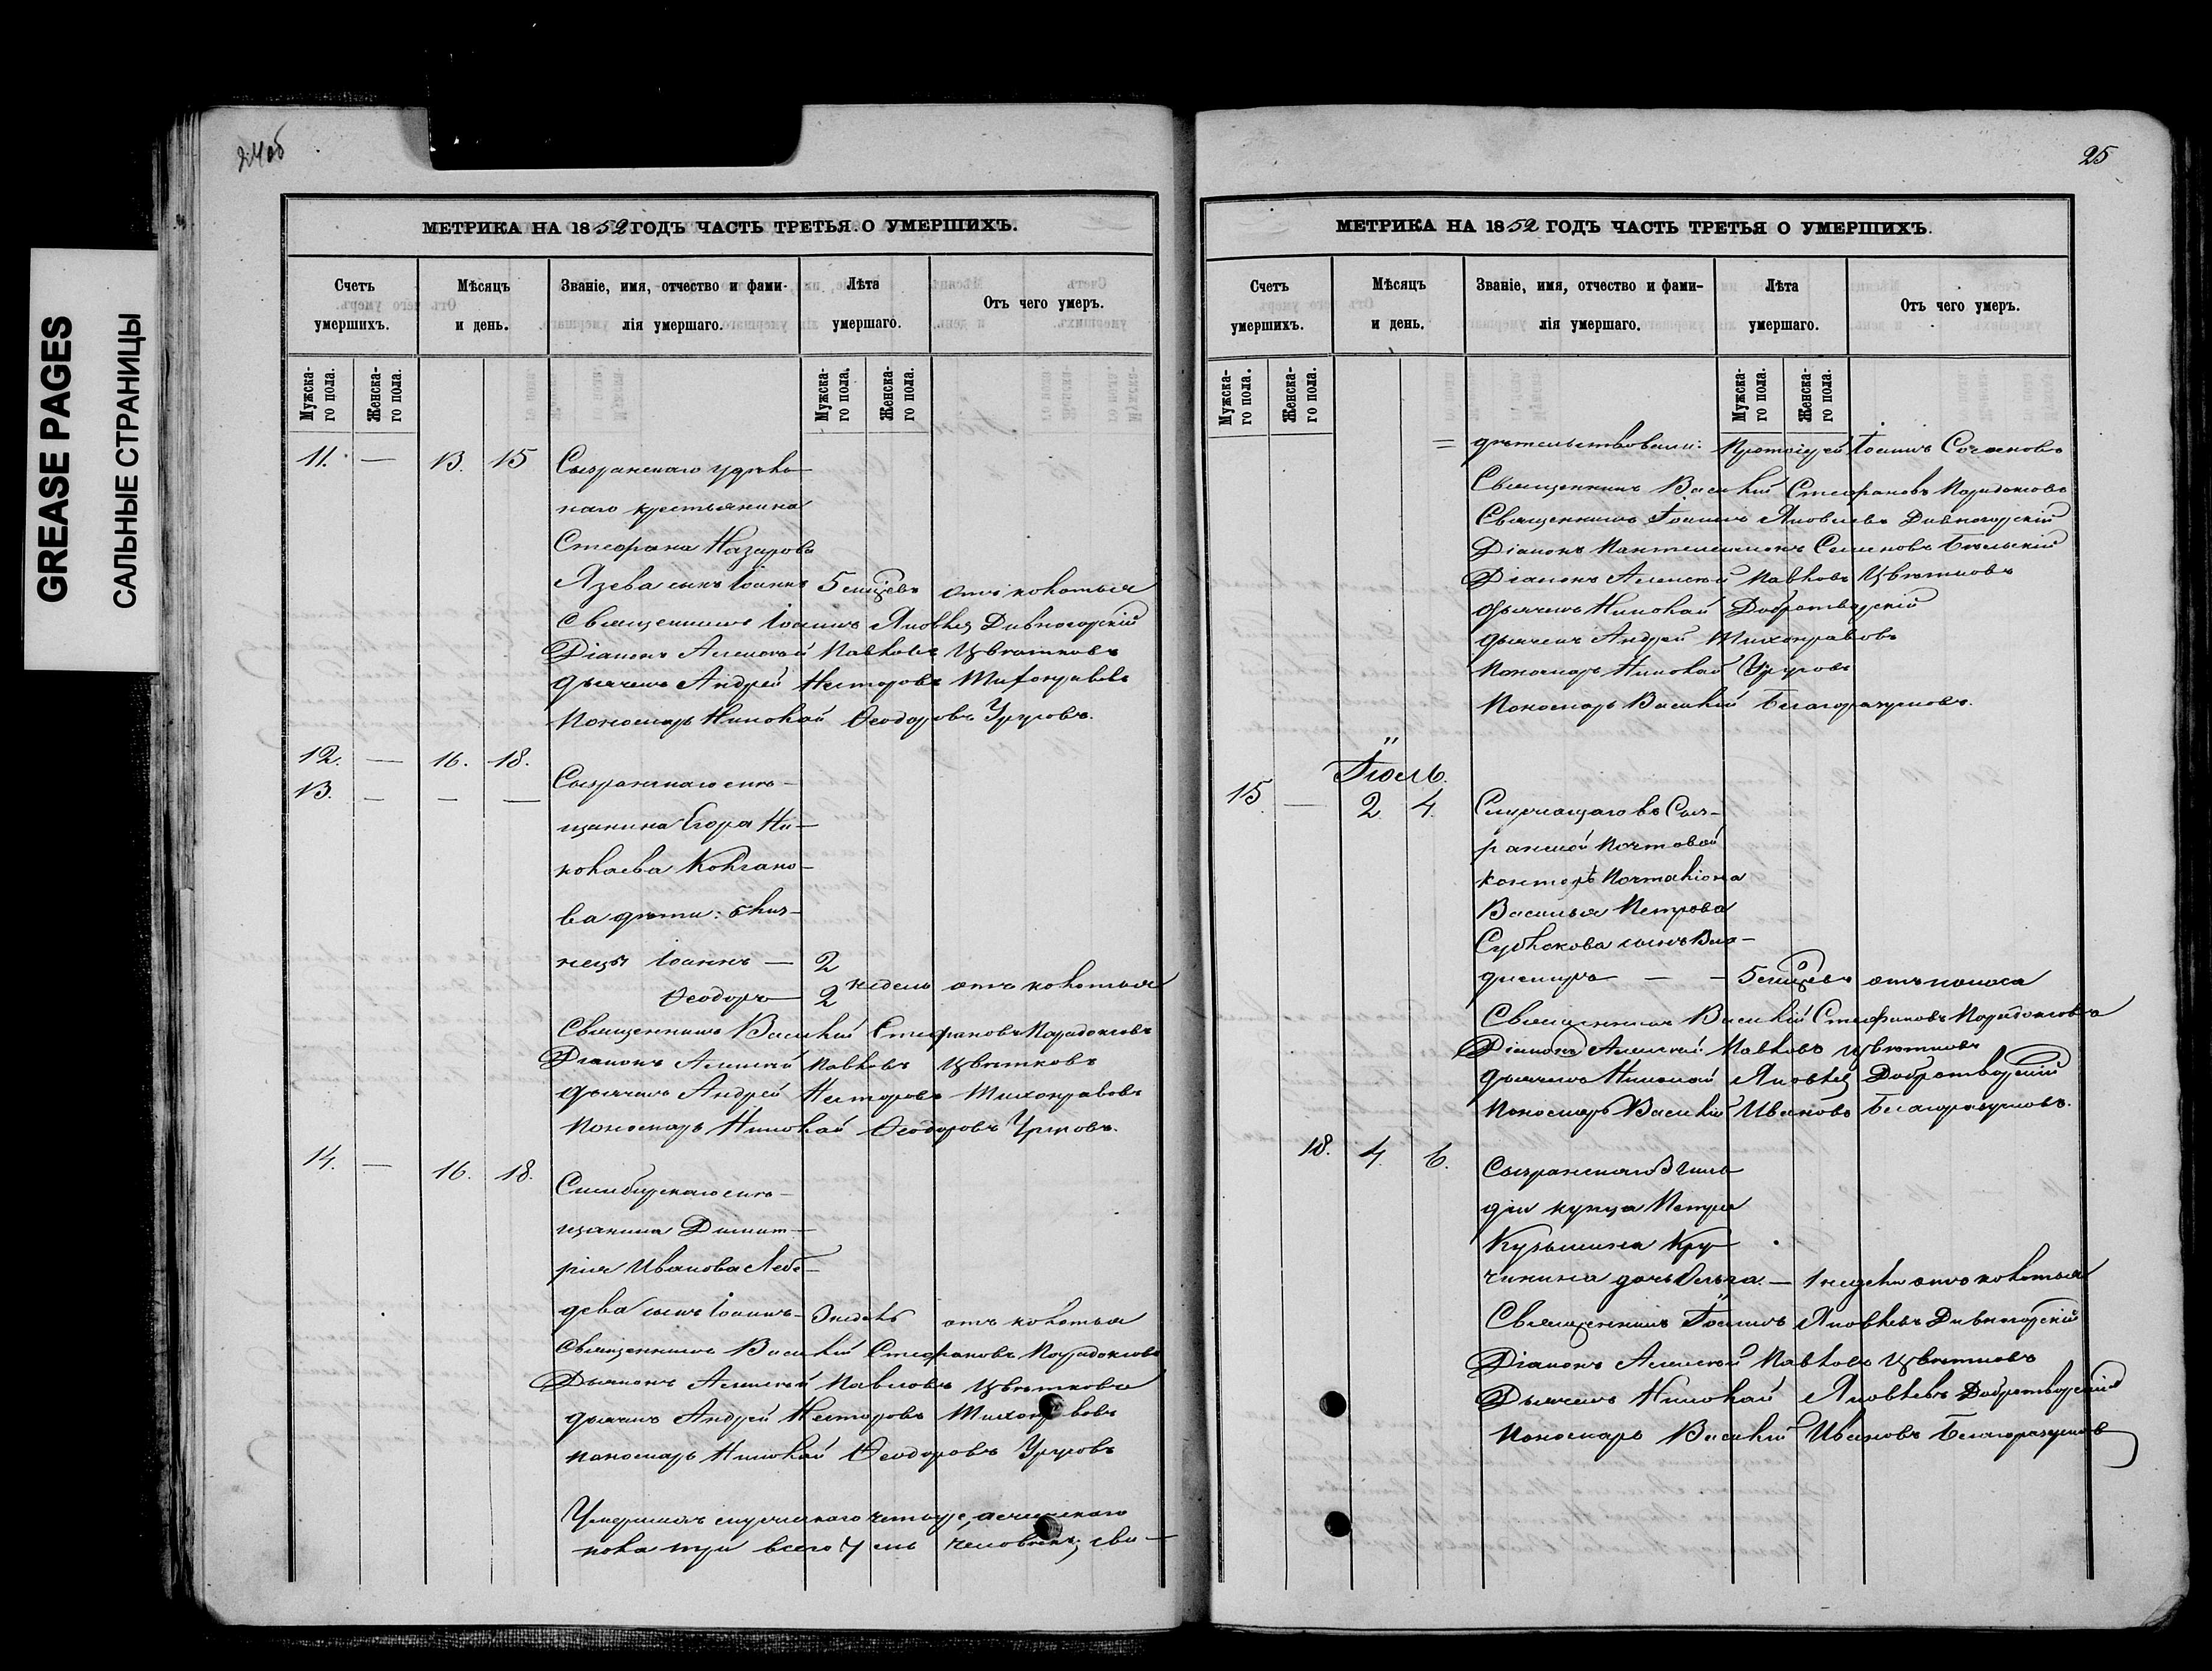 GREASE PAGES
САЛЬНЫЕ СТРАНИЦЫ
24об
МЕТРИКА НА 1852 ГОДЪ ЧАСТЬ ТРЕТЬЯ О УМЕРШИХЪ.
Счетъ умершихъ.
Мѣсяцъ и день.
Званіе, имя, отчество и фамилія умершаго.
Лѣта умершаго.
Отъ чего умеръ.
Мужска-го пола.
Женска-го пола.
Мужска-го пола.
Женска-го пола.
11. — 13. 15 Сызранскаго удѣль-
наго крестьянина
Стефана Назарова
Язева сынъ Іоаннъ 5 мѣсяцевъ отъ колотья
Священникъ Іоаннъ Яковлев Дивногорскій
Діаконъ Алексѣй Павловъ Цвѣтковъ
дьячекъ Андрей Несторовъ Тихонравовъ
Пономарь Николай Ѳеодоровъ Уруровъ.
12. — 16. 18. Сызранскаго мѣ-
13. — — —
щанина Егора Ни-
колаева Колгано-
ва дѣти: близ-
нецы Іоаннъ — 2
Ѳеодоръ — 2 недели отъ колотья
Священникъ Василій Стефановъ Парадоксовъ
Діаконъ Алексѣй Павловъ Цвѣтковъ
дьячекъ Андрей Несторовъ Тихонравовъ
Пономарь Николай Ѳеодоровъ Уруровъ.
14. — 16. 18. Симбирскаго мѣ-
щанина Димит-
рія Иванова Лебе-
дева сынъ Іоаннъ — 3 недель отъ колотья
Священникъ Василій Стефановъ Парадоксовъ
Дьяконъ Алексѣй Павловъ Цвѣтковъ
дьячекъ Андрей Несторовъ Тихонравовъ
пономарь Николай Ѳеодоровъ Уруровъ
Умершихъ мужскаго четыре, а женскаго
пола три всего 7 мь человѣкъ, сви-
25
МЕТРИКА НА 1852 ГОДЪ ЧАСТЬ ТРЕТЬЯ О УМЕРШИХЪ.
Счетъ умершихъ.
Мѣсяцъ и день.
Званіе, имя, отчество и фамилія умершаго.
Лѣта умершаго.
Отъ чего умеръ.
Мужска-го пола.
Женска-го пола.
Мужска-го пола.
Женска-го пола.
= дѣтельствовали: Протоіерей Іоаннъ
Священникъ Василій Стефановъ Парадоксовъ
Священникъ Іоаннъ Яковлевъ Дивногорскій
Діаконъ Пантелеимонъ Семеновъ Бѣльскій
Діаконъ Алексѣй Павловъ Цвѣтковъ
дьячекъ Николай Добротворскій
дьячекъ Андрей Тихонравовъ
Пономарь Николай Уруровъ
Пономарь Василій Благоразумовъ.
Іюль.
15. — 2 4. Служащаго въ Сыз-
ранской Почтовой
конторѣ Почталіона
Василья Петрова
сынъ Вла-
димиръ — — 5 мѣсяцевъ отъ поноса
Священникъ Василій Стефановъ Парадоксовъ
Діаконъ Алексѣй Павловъ Цвѣтковъ
дьячекъ Николай Яковлев Добротворскій
Пономарь Василій Ивановъ Благоразумовъ.
18. 4. 6. Сызранскаго 3 гиль-
діи купца Петра
Кузьмина Кру-
чинина дочь Ольга — 1 недели отъ колотья
Священникъ Іоаннъ Яковлевъ Дивногорскій
Діаконъ Алексѣй Павловъ Цвѣтковъ
Дьячекъ Николай Яковлевъ Добротворскій
Пономарь Василій Ивановъ Благоразумов